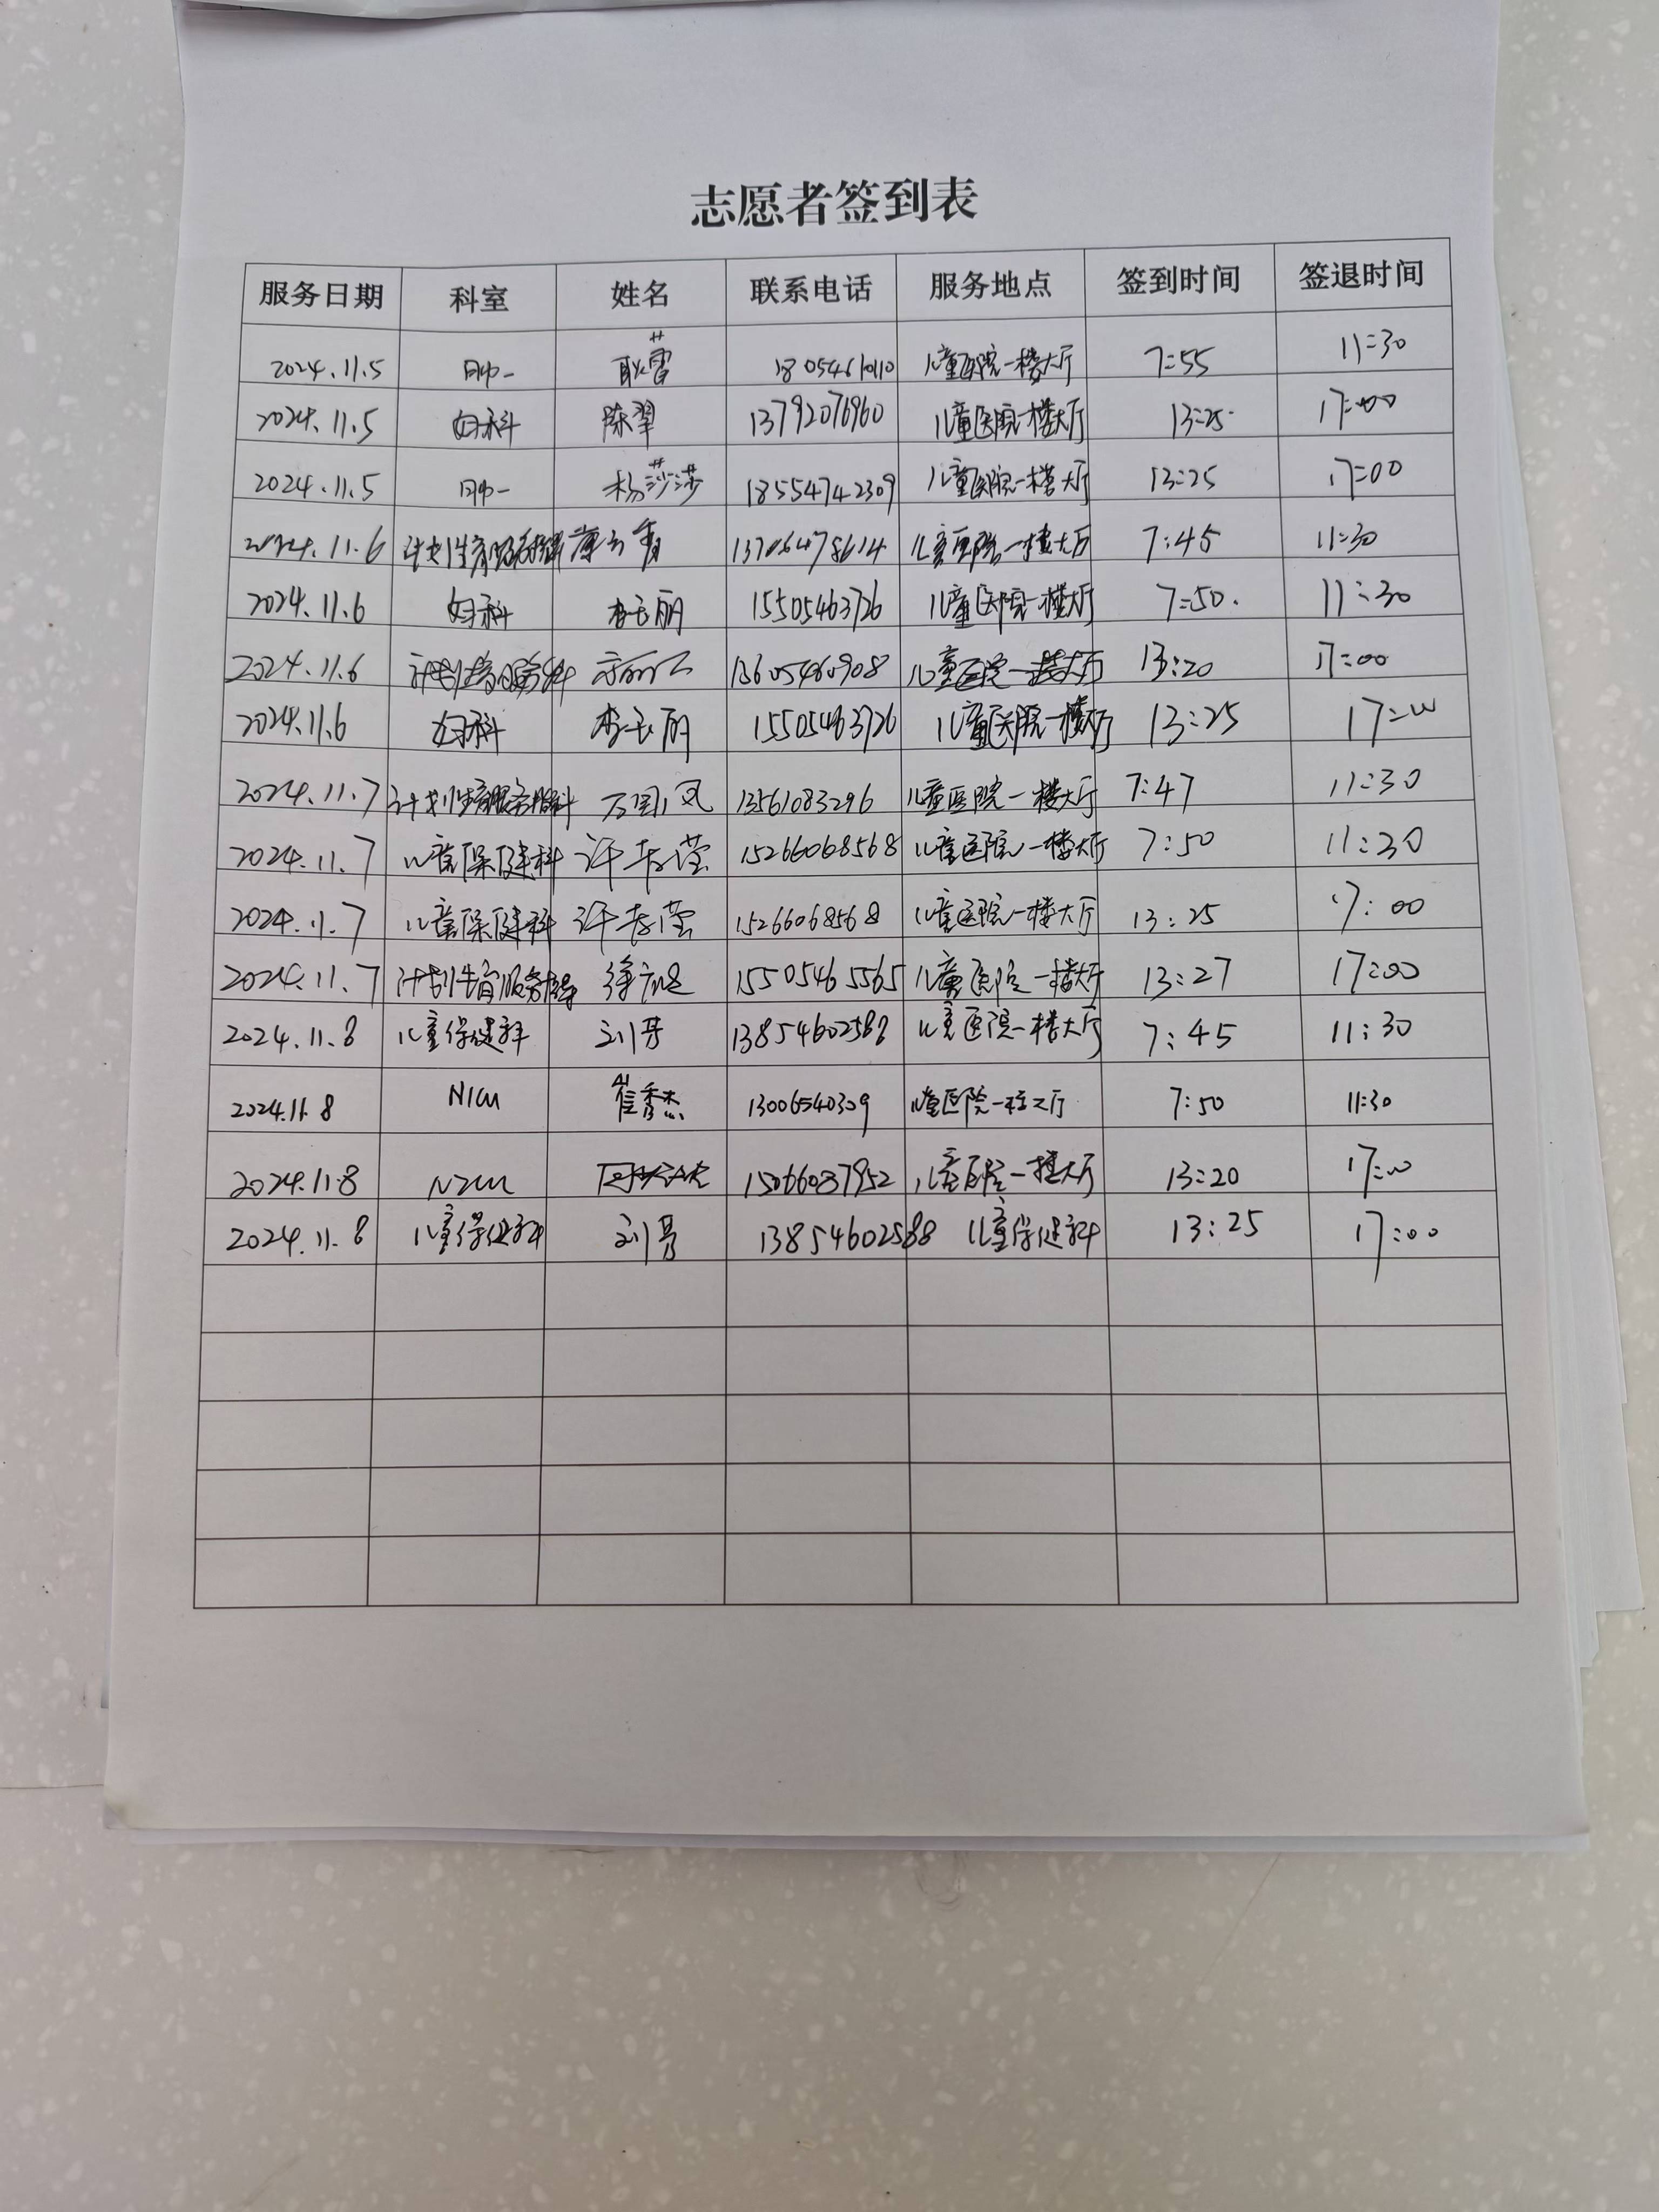 志愿者签到表
服务日期 科室 姓名 联系电话 服务地点 签到时间 签退时间
2024.11.5 耿蕾 18054610110 儿童医院一楼大厅 7:55 11:30
2024.11.5 妇科 陈翠 13792076960 儿童医院一楼大厅 13:25 17:00
2024.11.5 杨莎莎 18554742309 儿童医院一楼大厅 13:25 17:00
2024.11.6 13706478614 儿童医院一楼大厅 7:45 11:30
2024.11.6 妇科 李玉丽 15505463726 儿童医院一楼大厅 7:50 11:30
2024.11.6 13605460908 儿童医院一楼大厅 13:20 17:00
2024.11.6 妇科 李玉丽 15505463726 儿童医院一楼大厅 13:25 17:00
2024.11.7 13561083296 儿童医院一楼大厅 7:47 11:30
2024.11.7 儿童保健科 许春莹 15266068568 儿童医院一楼大厅 7:50 11:30
2024.11.7 儿童保健科 许春莹 15266068568 儿童医院一楼大厅 13:25 17:00
2024.11.7 15505465565 儿童医院一楼大厅 13:27 17:00
2024.11.8 儿童保健科 刘芳 13854602588 儿童医院一楼大厅 7:45 11:30
2024.11.8 NICU 崔秀杰 13006540309 儿童医院一楼大厅 7:50 11:30
2024.11.8 NICU 15066037952 儿童医院一楼大厅 13:20 17:00
2024.11.8 儿童保健科 刘芳 13854602588 儿童保健科 13:25 17:00